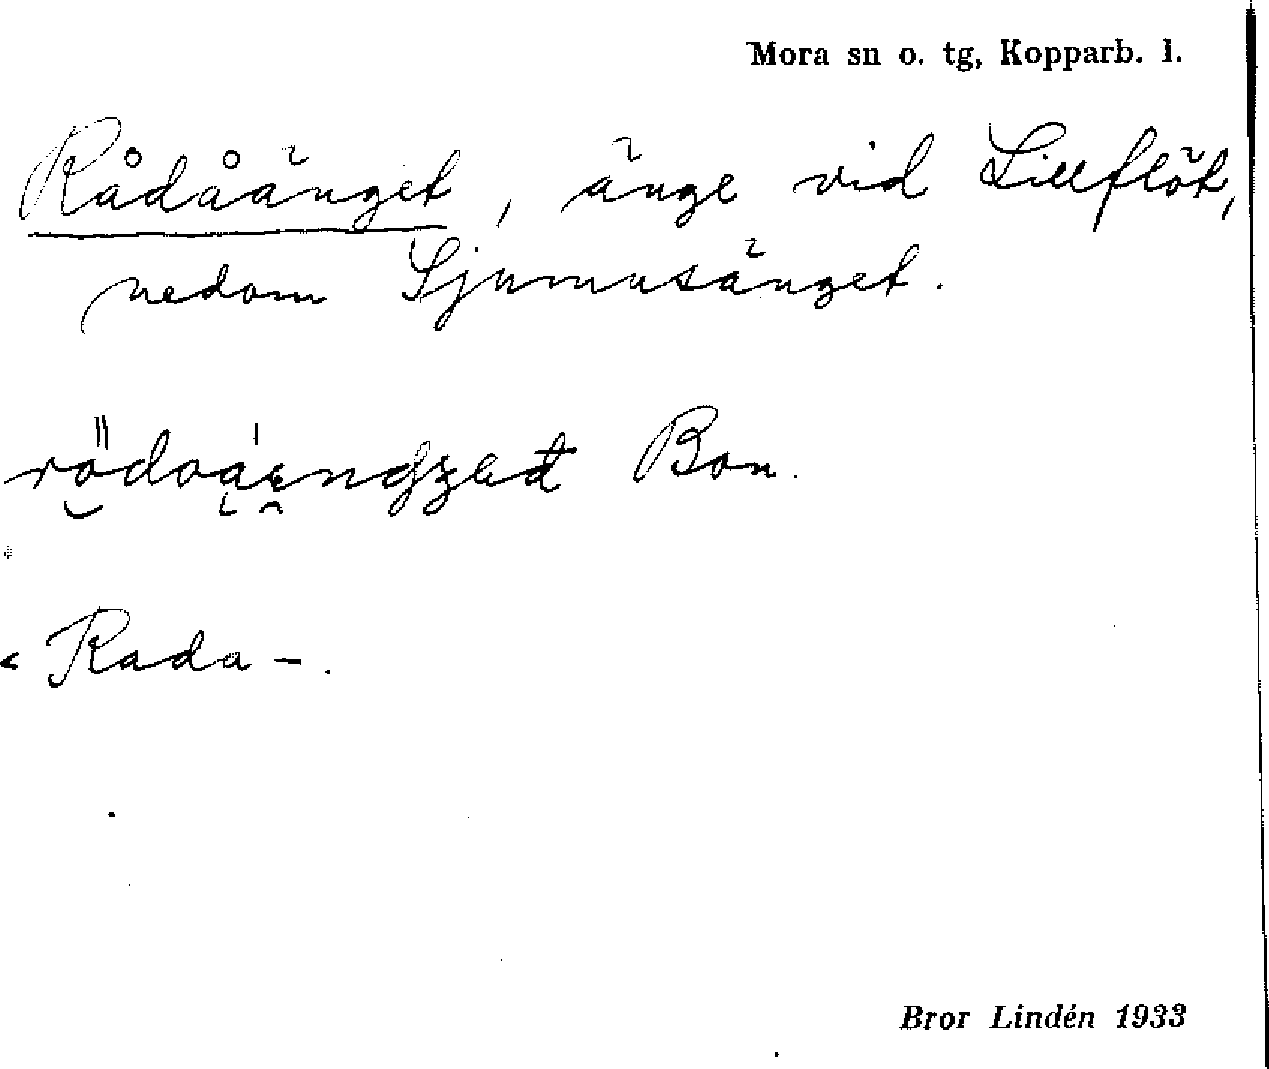 Mora sn o. tg, Kopparb. l.
Rådåänget, änge vid Lillflöt,
nedom Sjumusänget.
Bon.
< Rada-.
Bror Lindén 1933